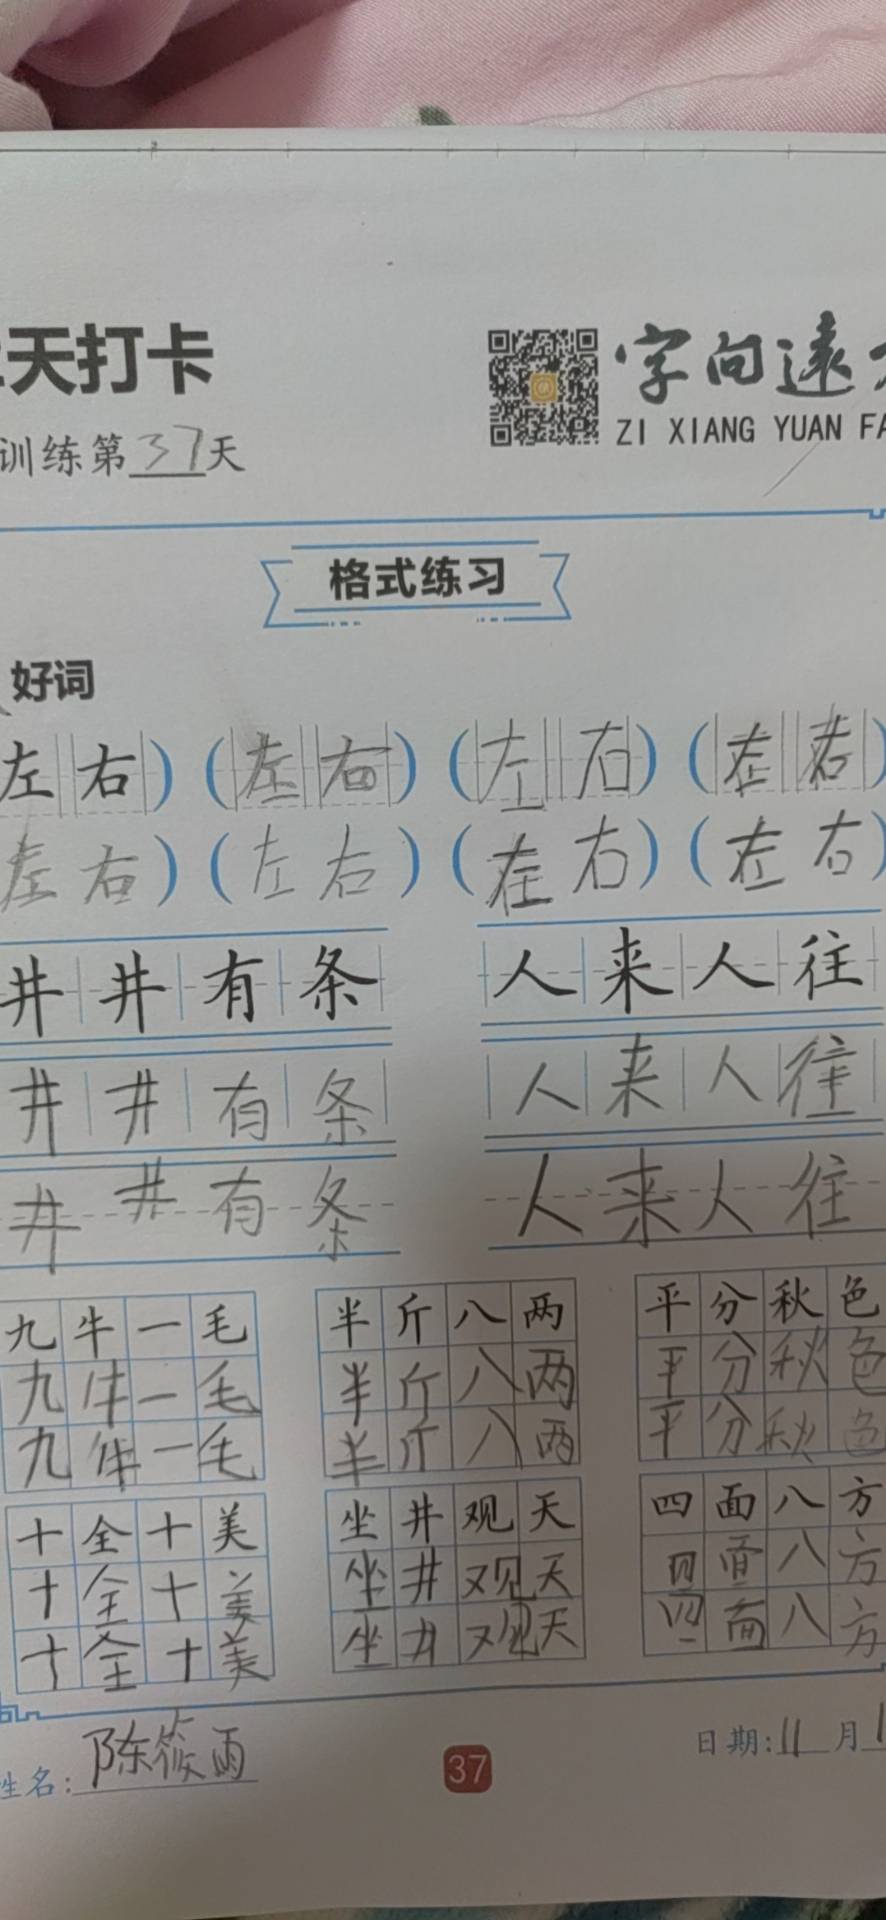 天打卡
字向遠
ZI XIANG YUAN FA
训练第37天
格式练习
好词
左右)(左右)(左右)(左右)
左右)(左右)(左右)(左右)
井井有条 人来人往
井井有条 人来人往
井井有条 人来人往
九牛一毛 半斤八两 平分秋色
九牛一毛 半斤八两 平分秋色
九牛一毛 半斤八两 平分秋色
十全十美 坐井观天 四面八方
十全十美 坐井观天 四面八方
十全十美 坐井观天 四面八方
姓名:陈筱雨
37
日期:11月1